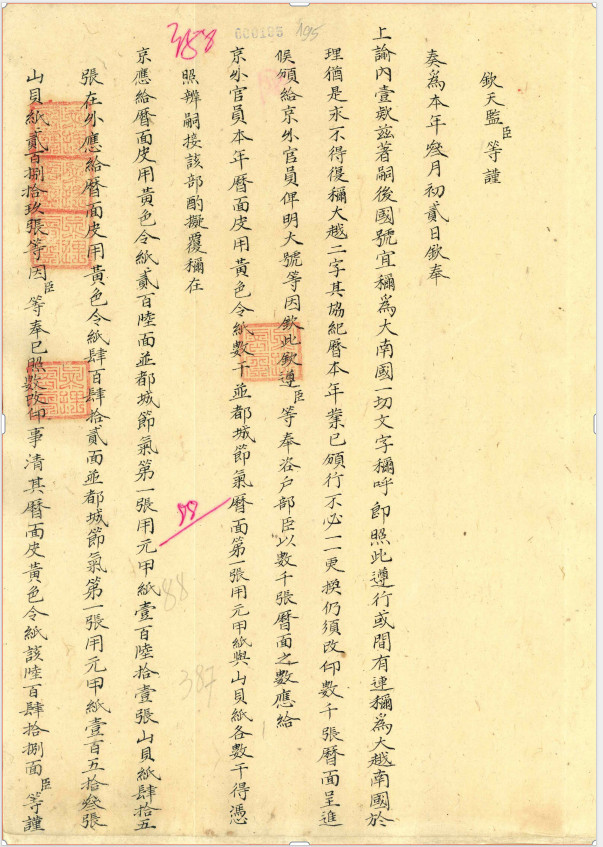 欽天監臣等謹
奏爲本年叄月初貳日欽奉
上諭內壹欵兹著嗣後國號宜稱爲大南國一切文字稱呼即照此遵行或間有連稱爲大越南國於
理猶是永不得復稱大越二字其協紀曆本年業已頒行不必一一更換仍須改印數千張曆面呈進
候頒給京外官員俾明大號等因欽此欽遵臣等奉咨户部臣以數千張曆面之數應給
京外官員本年曆面皮用黃色令紙數千並都城節氣曆面第一張用元甲紙與山貝紙各數千得憑
照辦嗣接該部酌擬覆稱在
京應給曆面皮用黃色令紙貳百陸面並都城節氣第一張用元甲紙壹百陸拾壹張山貝紙肆拾五
張在外應給曆面皮用黃色令紙肆百肆拾貳面並都城節氣第一張用元甲紙壹百五拾叄張
山貝紙貳百捌拾玖張等因臣等奉已照數改印事清其曆面皮黃色令紙該陸百肆拾捌面臣等謹
388
195
88
88
387